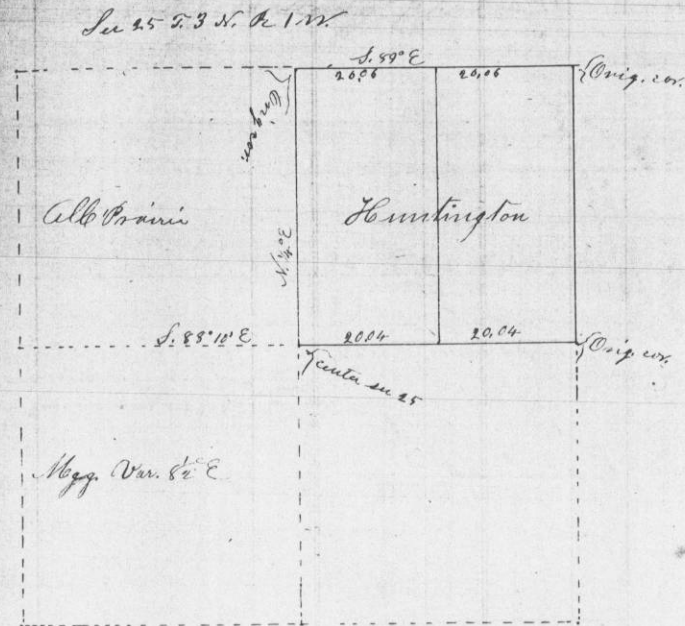 Sec 25 T. 3 N. R 1 W.
S. 89° E
20.06 20.06
Orig. cor.
Orig. cor.
All Prairie
Huntington
N. ¼° E
S. 88° 10' E
20.04 20.04
Orig. cor.
center sec 25
Mgg. Var. 8½° E